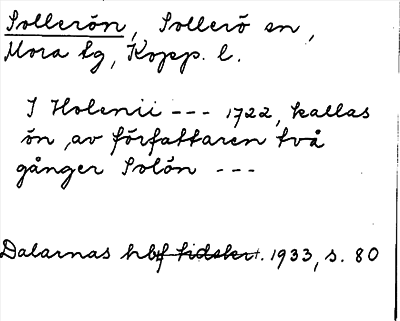 Sollerön, Sollerö sn,
Mora tg, Kopp. l.
I Holenii --- 1722, kallas
ön, av författaren två
gånger Solön ---
Dalarnas hbf tidskr. 1933, s. 80